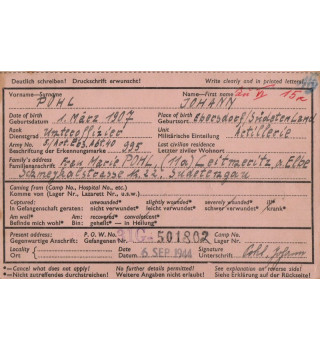 Deutlich schreiben! Druckschrift erwünscht! Write clearly and in printed letters!
Vorname—Surname Name—First name
POHL JOHANN 15a
Date of birth Place of birth
Geburtsdatum 1. März 1907 Geburtsort Ebersdorf/Sudeten Land
Rank Unit
Dienstgrad Unteroffizier Militärische Einteilung Artillerie
Army No. Last civilian residence
Beschriftung der Erkennungsmarke 395 Letzter ziviler Wohnort
Family's address
Familienanschrift Frau Marie POHL, (11a) Leitmeritz a. Elbe
22, Sudetengau
Coming from (Camp No., Hospital No., etc.)
Komme von (Lager Nr., Lazarett Nr., u.s.w.)
Captured: unwounded* slightly wounded* severely wounded* ill*
Gefangen genommen: unverwundet leicht verwundet* schwer verwundet* krank*
Am well* Am: recovered* convalescent*
Befinde mich wohl* Bin: geheilt* — in Heilung*
Present address: P. O. W. No. Camp No.
Gegenwärtige Anschrift: Gefangenen Nr. 501802 Lager Nr.
Locality Date Signature
Ort Datum 6. SEP 1944 Unterschrift Pohl, Johann
*—Cancel what does not apply! No further details permitted! See explanation on reverse side!
*—Nicht zutreffendes durchstreichen! Weitere Angaben nicht erlaubt! Siehe Erklärung auf der Rückseite!